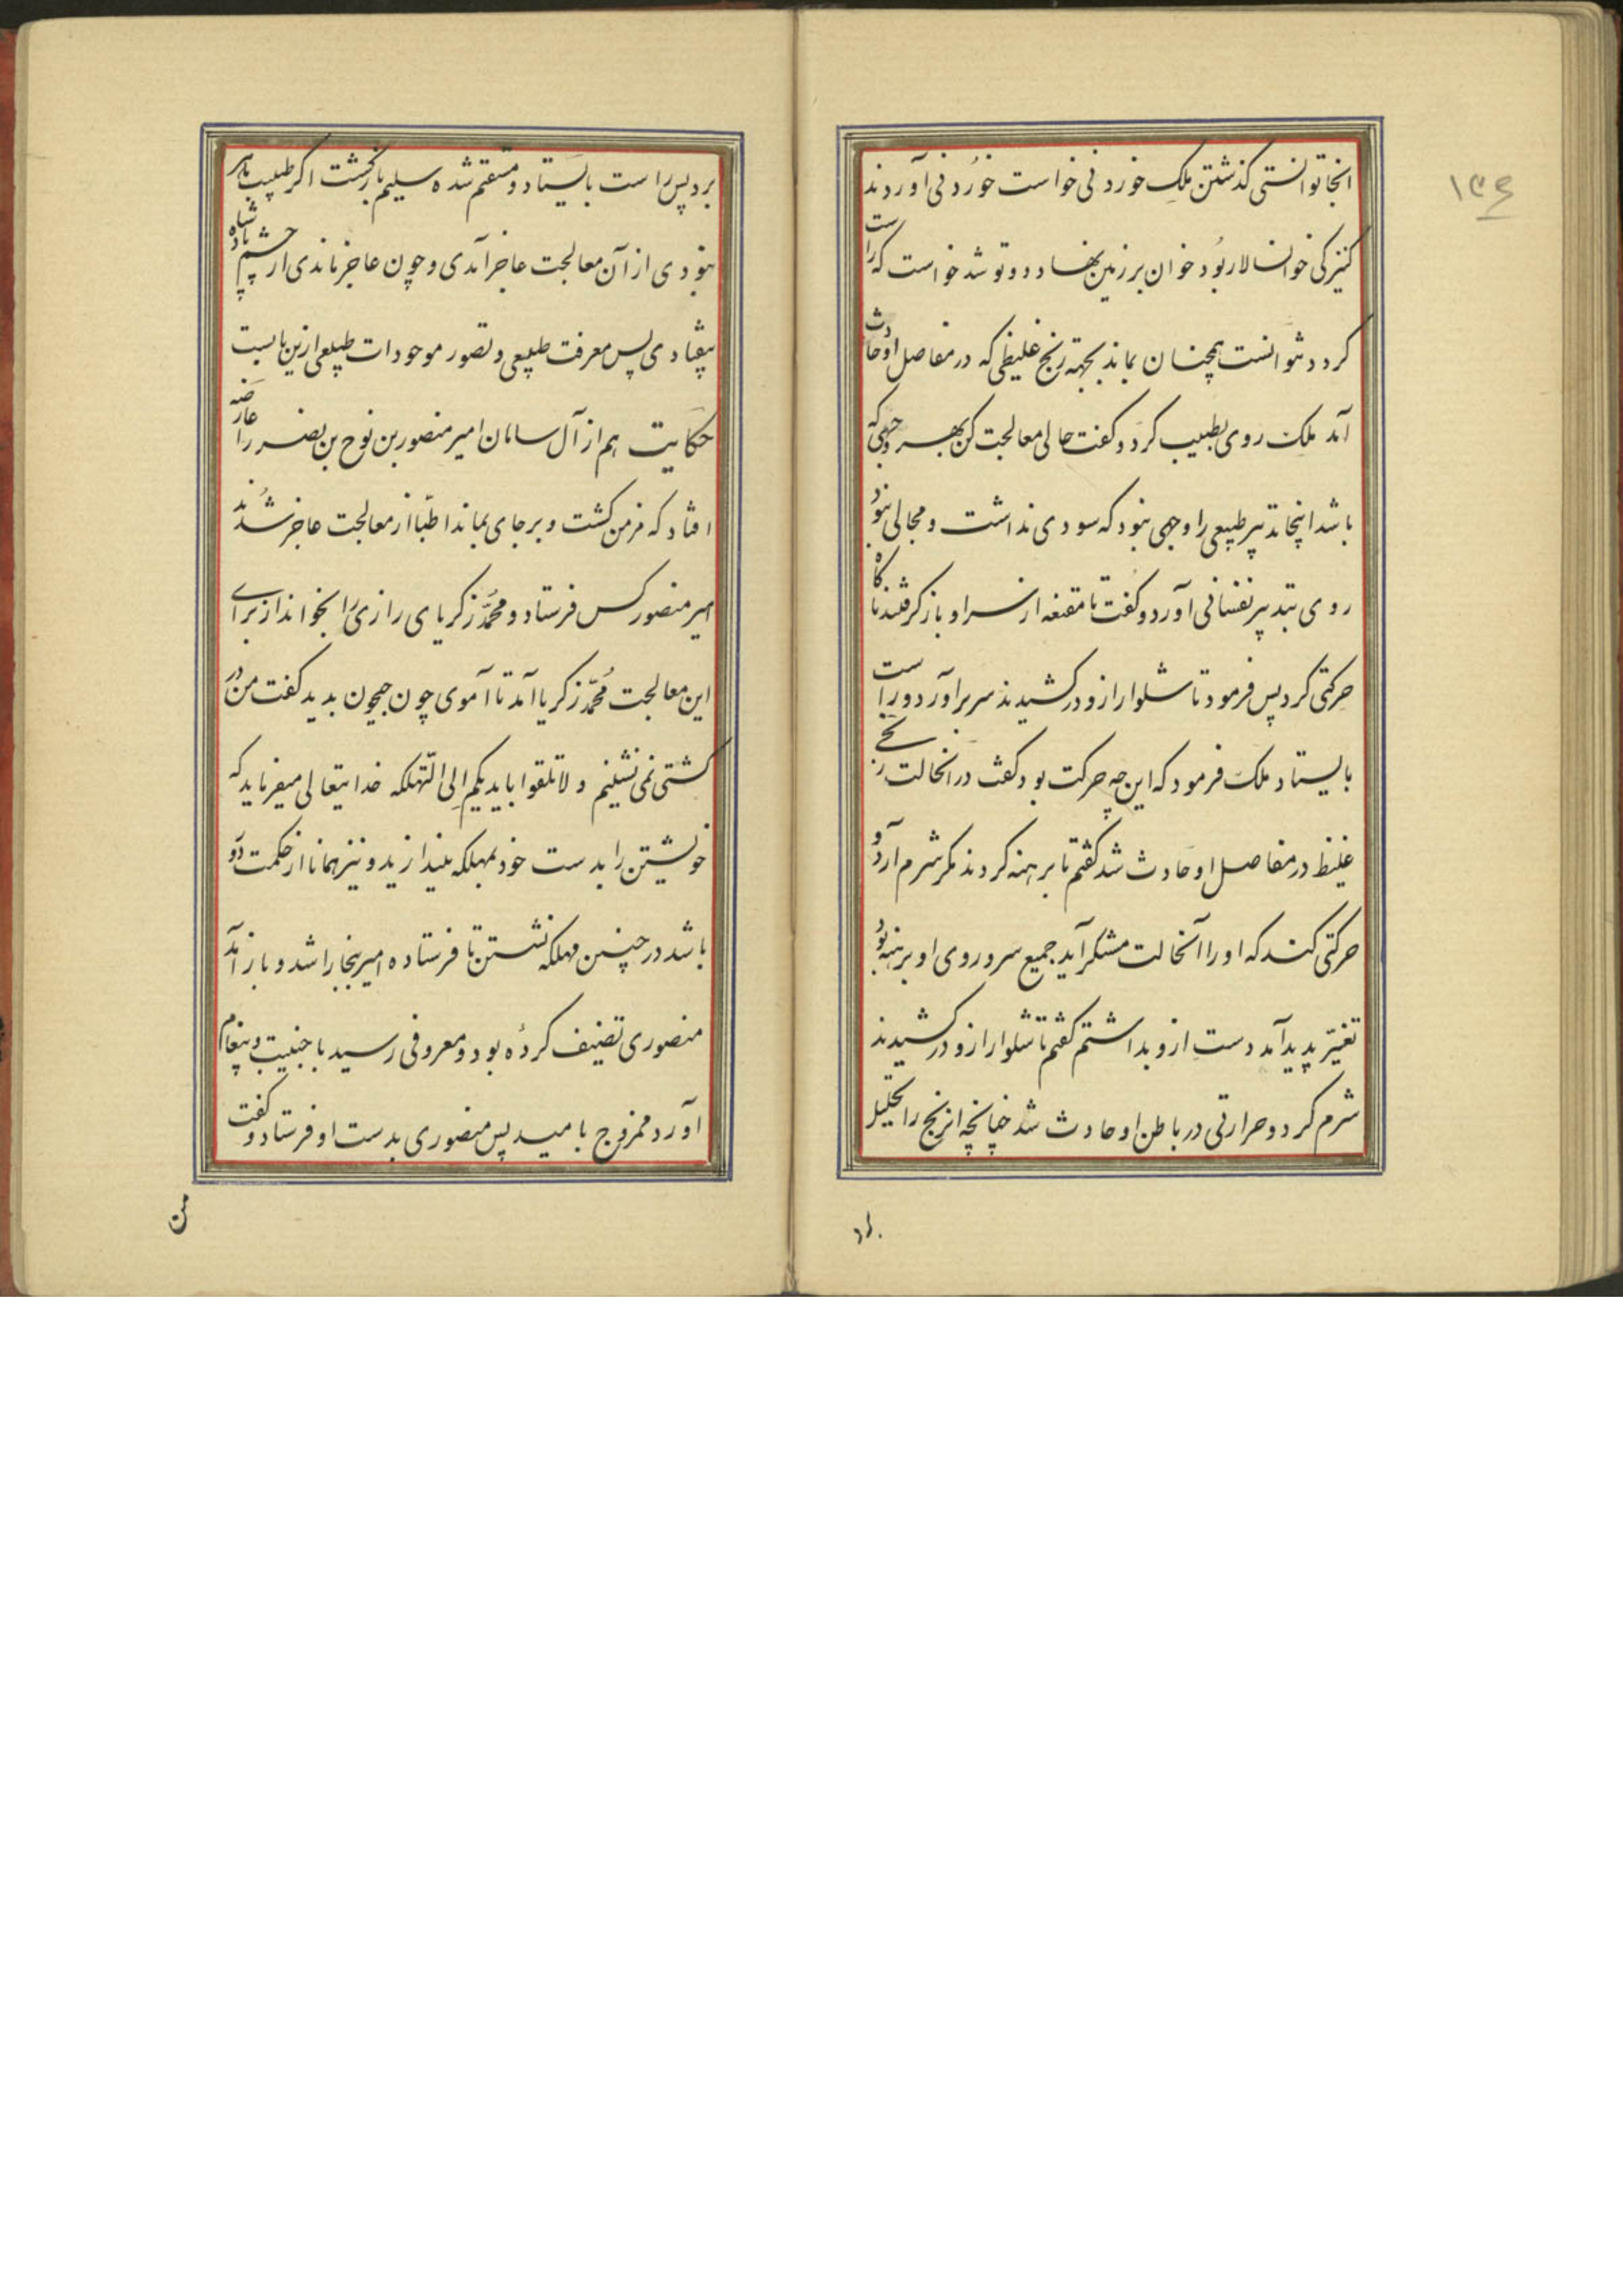 ۱۳۶
آنجا توانستی گذشتن ملک خوردنی خواست خوردنی آوردند
کنیزکی خوانسالار بود خوان بر زمین نهاد و دوتو شد خواست که راست
گردد نتوانست همچنان بماند بجهة ریح غلیظی که در مفاصل او حادث
آمد ملک روی بطبیب کرد و گفت حالی معالجت کن بهر وجهی که
باشد اینجا تدبیر طبیعی را وجهی نبود که سودی نداشت و مجالی نبود
روی بتدبیر نفسانی آورد و گفت تا مقنعه از سر او باز گرفتند ناگاه
حرکتی کرد پس فرمود تا شلوار ازو درکشیدند سر برآورد و راست
بایستاد ملک فرمود که این چه حرکت بود گفت در آنحالت ریحی
غلیظ در مفاصل او حادث شد گفتم تا برهنه کردند مگر شرم آرد و
حرکتی کند که او را آنحالت مشکر آید جمیع سر و روی او برهنه بود
تغیّر پدید آمد دست ازو بداشتم گفتم تا شلوار ازو درکشیدند
شرم کرد و حرارتی در باطن او حادث شد چنانچه آنریح را تحلیل
برد پس راست بایستاد و مستقیم شده سلیم بازگشت اگر طبیب ماهر
نبودی از آن معالجت عاجز آمدی و چون عاجز ماندی از چشم پادشاه
بیفتادی پس معرفت طبیعی و تصور موجودات طبیعی ازین بابست
حکایت هم از آل سامان امیر منصور بن نوح بن نصر را عارضه
افتاد که مزمن گشت و برجای بماند اطبّا از معالجت عاجز شدند
امیر منصور کس فرستاد و محمّد زکریای رازی را بخواند از برای
این معالجت محمّد زکریا آمد تا آموی چون جیحون بدید گفت من در
کشتی نمی نشینم و لا تلقوا بایدیکم الی التّهلکه خدایتعالی میفرماید که
خویشتن را بدست خود بمهلکه میندازید و نیز همانا از حکمت دور
باشد در چنین مهلکه نشستن تا فرستاده امیر ببخارا شد و باز آمد
منصوری تصنیف کرده بود و معروفی رسید با جنیبت و پیغام
آورد ممزوج بامید پس منصوری بدست او فرستاد و گفت
من